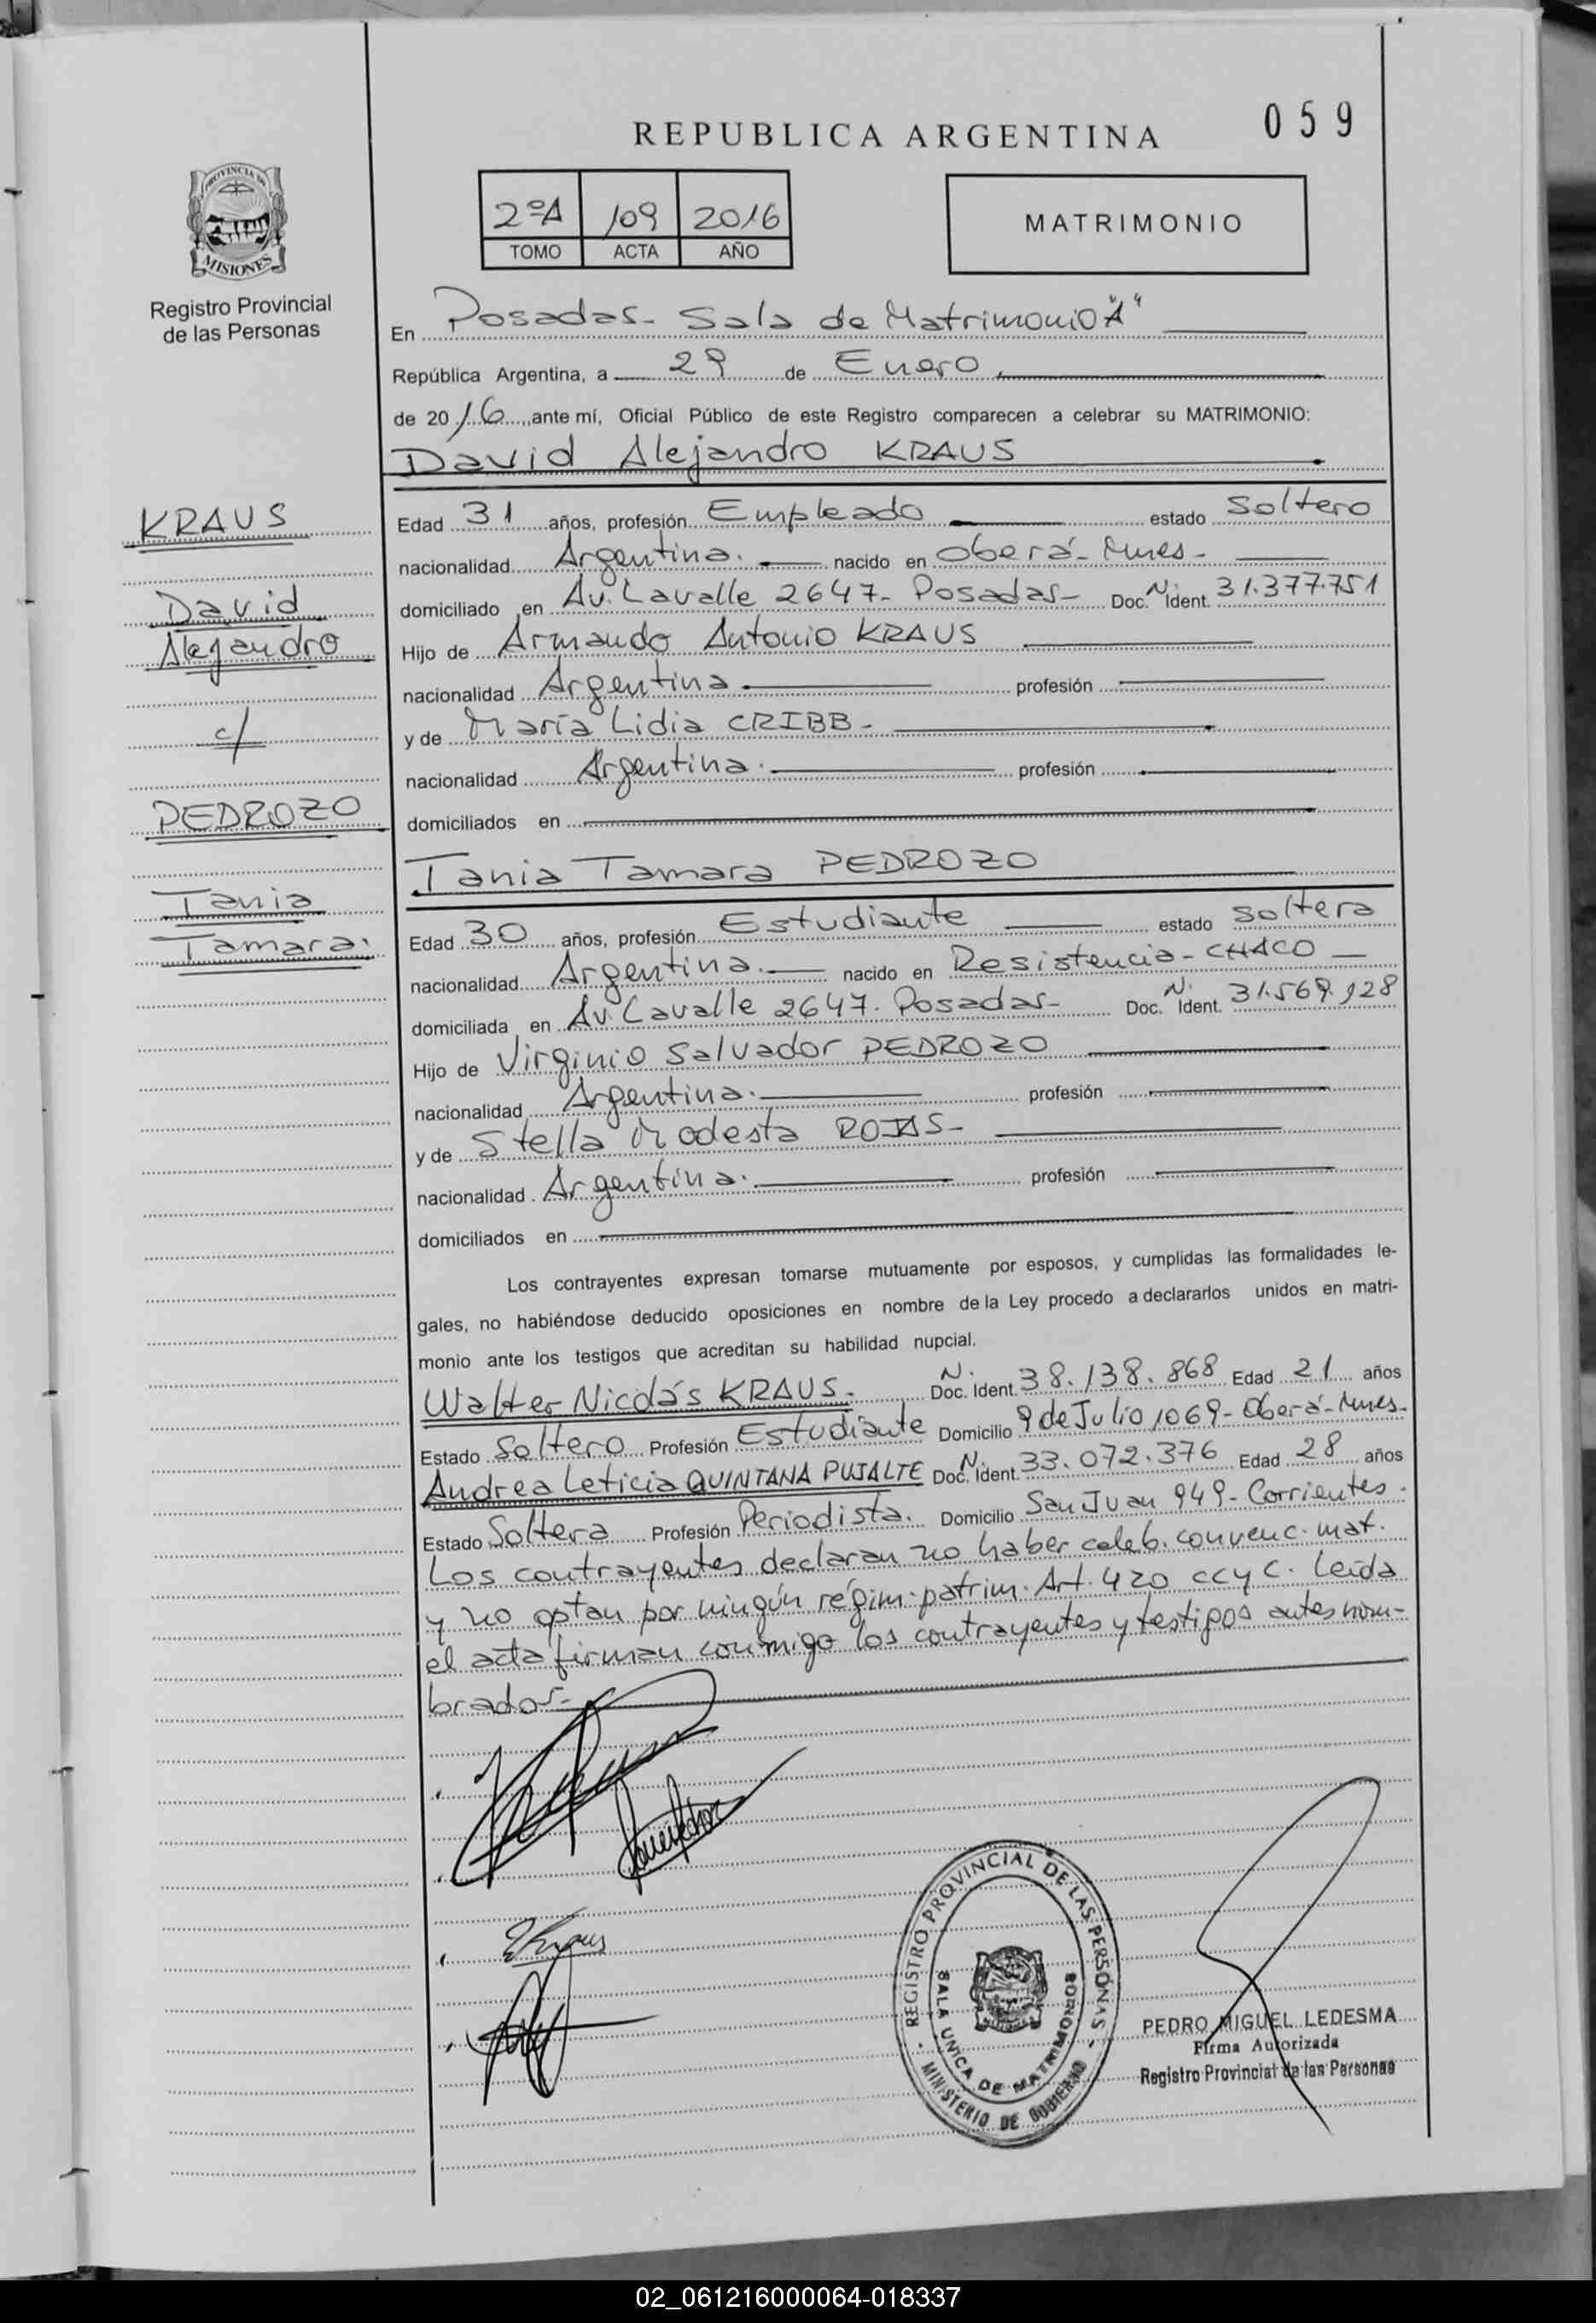 059
REPUBLICA ARGENTINA
PROVINCIA DE
MISIONES
Registro Provincial
de las Personas
2ºA 109 2016
TOMO ACTA AÑO
MATRIMONIO
En Posadas- Sala de Matrimonio "A"
República Argentina, a 29 de Enero
de 2016, ante mí, Oficial Público de este Registro comparecen a celebrar su MATRIMONIO:
David Alejandro KRAUS
KRAUS
David
Alejandro
c/
PEDROZO
Tania
Tamara.
Edad 31 años, profesión Empleado estado Soltero
nacionalidad Argentina. nacido en Oberá- Mnes-
domiciliado en Av. Lavalle 2647- Posadas- Doc. N. Ident. 31.377.751
Hijo de Armando Antonio KRAUS
nacionalidad Argentina profesión
y de María Lidia CRIBB-
nacionalidad Argentina. profesión
domiciliados en
Tania Tamara PEDROZO
Edad 30 años, profesión Estudiante estado Soltera
nacionalidad Argentina. nacido en Resistencia- CHACO-
domiciliada en Av. Lavalle 2647. Posadas- Doc. N. Ident. 31.569.928
Hijo de Virginio Salvador PEDROZO
nacionalidad Argentina. profesión
y de Stella Modesta ROJAS-
nacionalidad Argentina. profesión
domiciliados en
Los contrayentes expresan tomarse mutuamente por esposos, y cumplidas las formalidades le-
gales, no habiéndose deducido oposiciones en nombre de la Ley procedo a declararlos unidos en matri-
monio ante los testigos que acreditan su habilidad nupcial.
Walter Nicolás KRAUS. Doc. N. Ident. 38.138.868 Edad 21 años
Estado Soltero Profesión Estudiante Domicilio 9 de Julio 1069- Oberá- Mnes-
Andrea Leticia QUINTANA PUJALTE Doc. N. Ident. 33.072.376 Edad 28 años
Estado Soltera Profesión Periodista. Domicilio San Juan 949- Corrientes.
Los contrayentes declaran no haber celeb. convenc. mat.
y no optan por ningún régim. patrim. Art. 420 CCyC. Leída
el acta firman conmigo los contrayentes y testigos antes nom-
brados-
REGISTRO PROVINCIAL DE LAS PERSONAS
SALA UNICA DE MATRIMONIOS
MINISTERIO DE GOBIERNO
PEDRO MIGUEL LEDESMA
Firma Autorizada
Registro Provincial de las Personas
02_061216000064-018337